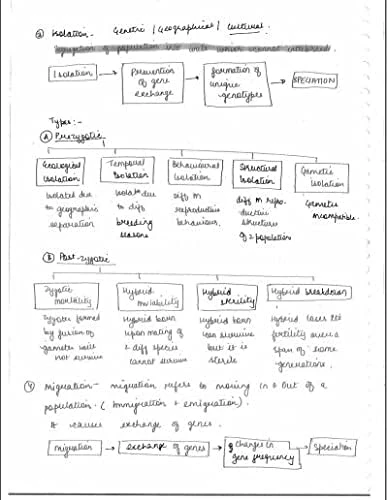 ③ Isolation - Genetic / Geographical / Cultural.
Segregation of population into units which cannot interbreed.
Isolation → Prevention of gene exchange → formation of unique genotypes → SPECIATION
Types :-
Ⓐ Prezygotic
Geological Isolation
Isolated due to geographic separation
Temporal Isolation
Isolate due to diff breeding seasons
Behavioural Isolation
diff in reproductive behaviour.
Structural Isolation
diff in repro- ductive structure of 2 population
Genetic Isolation
Genetics incompatible.
Ⓑ Post-zygotic
Zygotic mortality
Zygote formed by fusion of gametes will not survive
Hybrid inviability
Hybrid born upon mating of 2 diff species cannot survive
Hybrid sterility
Hybrid born can survive but it is sterile
Hybrid breakdown
Hybrid loses its fertility over a span of some generations.
④ Migration - migration refers to moving in & out of a
population. (Immigration & emigration).
It causes exchange of genes.
migration → exchange of genes → changes in gene frequency → Speciation